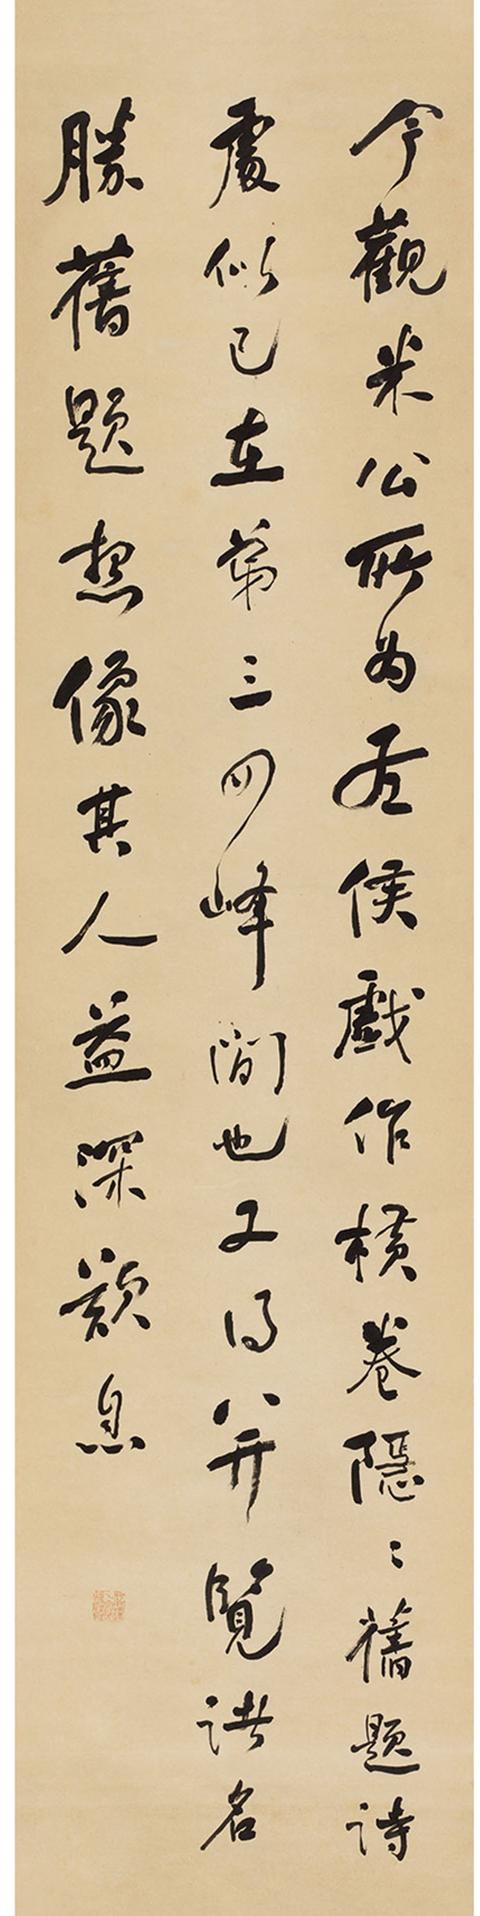 今觀米公所為左侯戲作橫卷隱〻舊題詩
處似已在第三四峰間也又得并覽諸名
勝舊題想像其人益深歎息